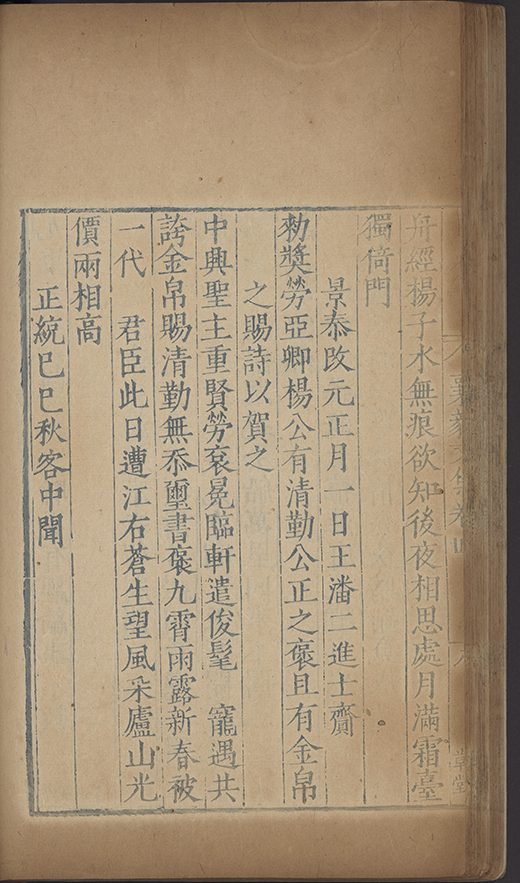 舟經楊子水無痕欲知後夜相思處月滿霜臺
獨倚門
景泰改元正月一日王潘二進士齎
勑奬勞亞卿楊公有清勤公正之褒且有金帛
之賜詩以賀之
中興聖主重賢勞袞冕臨軒遣俊髦 寵遇共
誇金帛賜清勤無忝璽書褒九霄雨露新春被
一代 君臣此日遭江右蒼生望風采廬山光
價兩相高
正統己巳秋客中聞